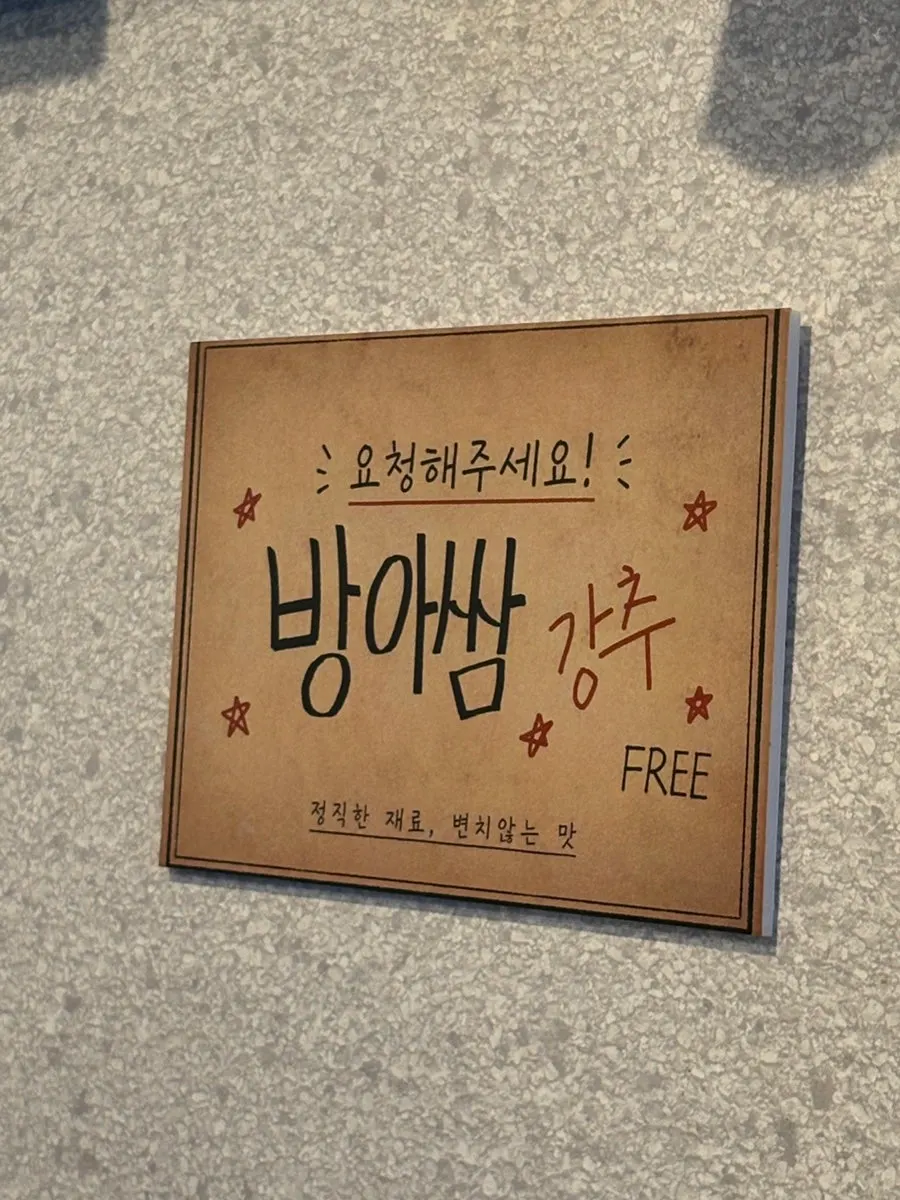 요청해주세요!
방아쌈 강추
FREE
정직한 재료, 변치않는 맛